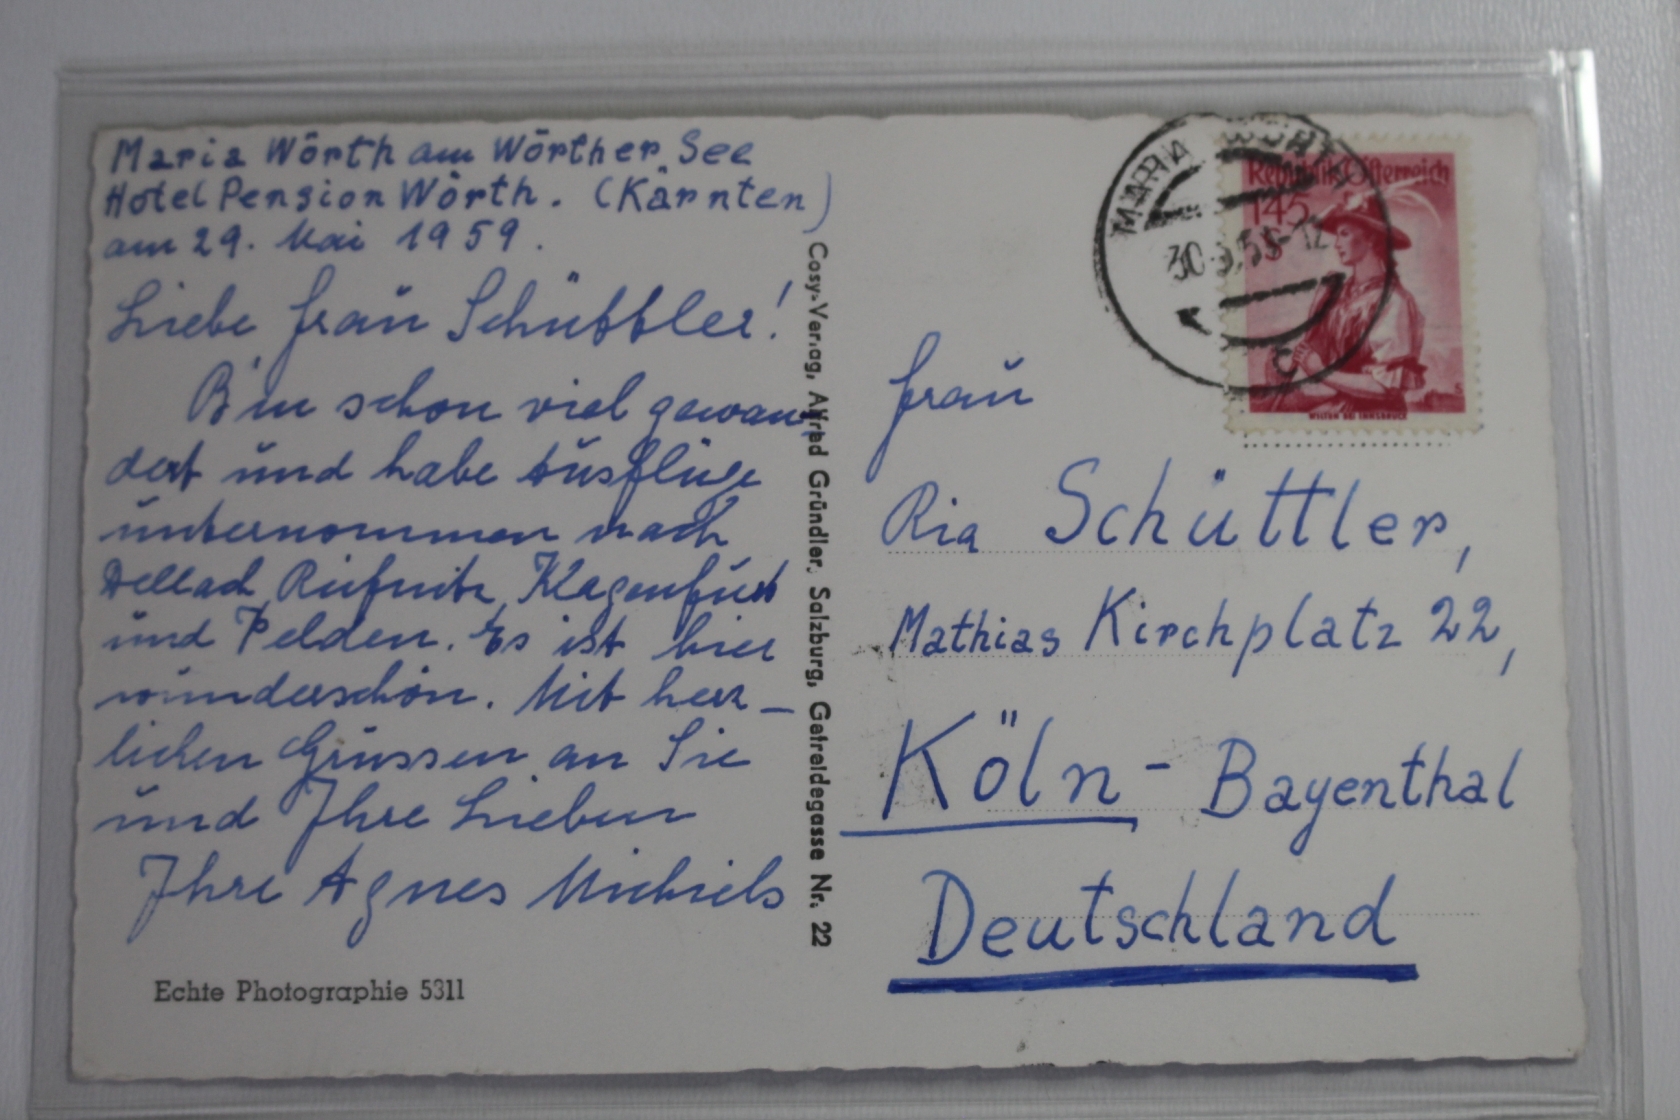 Maria Wörth am Wörther See
Hotel Pension Wörth. (Kärnten)
am 29. Mai 1959.
Liebe Frau Schüttler!
Bin schon viel gewan-
dert und habe Ausflüge
unternommen nach
Dellach, Reifnitz, Klagenfurt
und Velden. Es ist hier
wunderschön. Mit herz-
lichen Grüssen an Sie
und Ihre Lieben
Ihre Agnes Michiels
Echte Photographie 5311
Cosy-Verlag, Alfred Gründler, Salzburg, Getreidegasse Nr. 22
MARIA WÖRTH
30.5.59-12
C
Republik Österreich
145
WILTEN BEI INNSBRUCK
S
Frau
Ria Schüttler,
Mathias Kirchplatz 22,
Köln - Bayenthal
Deutschland